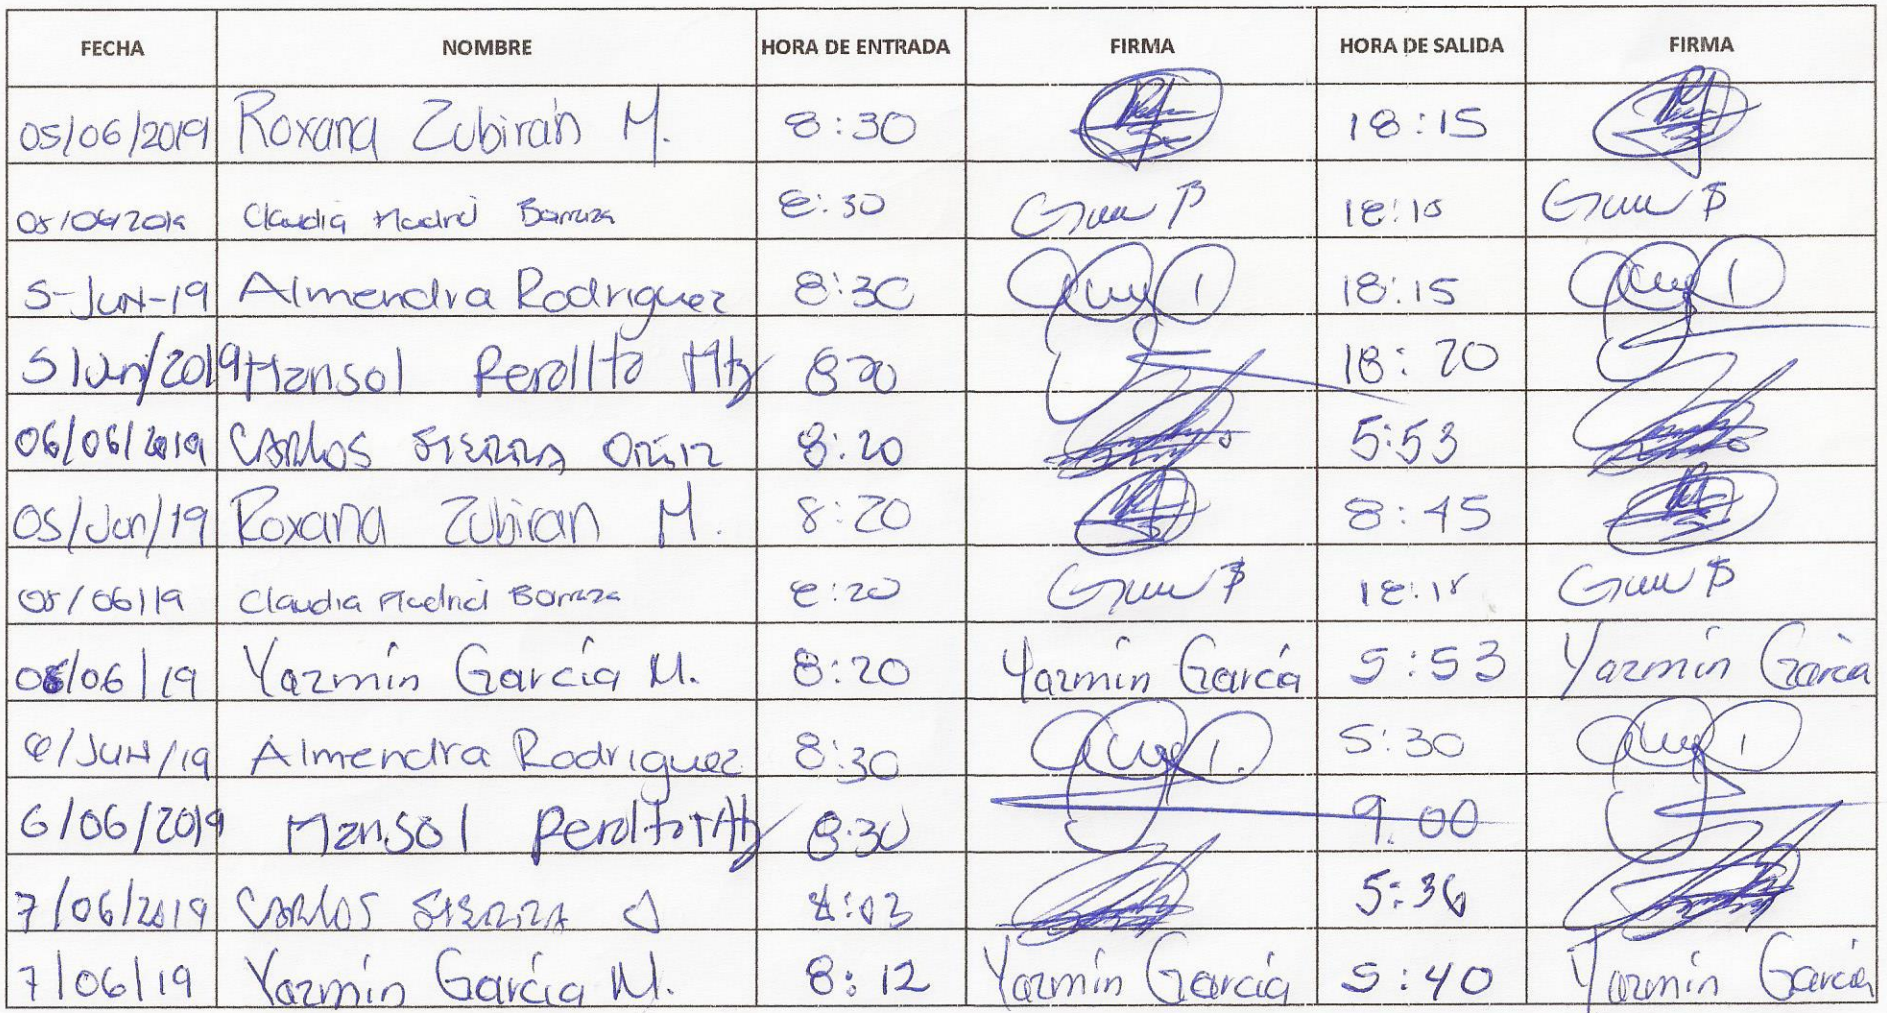 FECHA NOMBRE HORA DE ENTRADA FIRMA HORA DE SALIDA FIRMA
05/06/2019 Roxana Zubirán M. 8:30 18:15
05/06/2019 Claudia Madrid Barraza 8:30 18:15
5-JUN-19 Almendra Rodriguez 8:30 18:15
5/Jun/2019 Marisol Peralta Mtz 8:30 18:20
06/06/2019 CARLOS SIERRA 8:20 5:53
05/Jun/19 Roxana Zubiran M. 8:20 8:45
05/06/19 Claudia Madrid Barraza 8:20 18:15
06/06/19 Yazmín García M. 8:20 Yazmín García 5:53 Yazmín García
6/JUN/19 Almendra Rodriguez 8:30 5:30
6/06/2019 Marisol Peralta Mtz 8:30 9:00
7/06/2019 CARLOS SIERRA O 8:03 5:36
7/06/19 Yazmín García M. 8:12 Yazmín García 5:40 Yazmín García